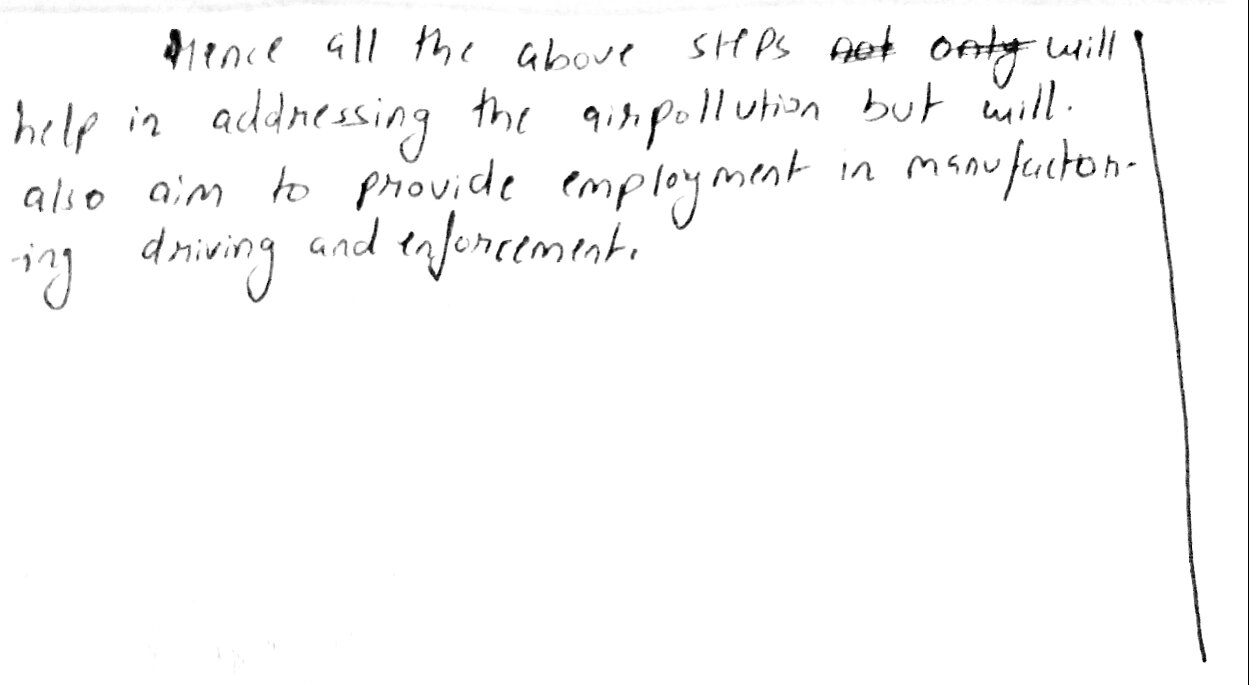 Hence all the above steps not only will
help in addressing the airpollution but will.
also aim to provide employment in manufactor-
-ing driving and enforcement.